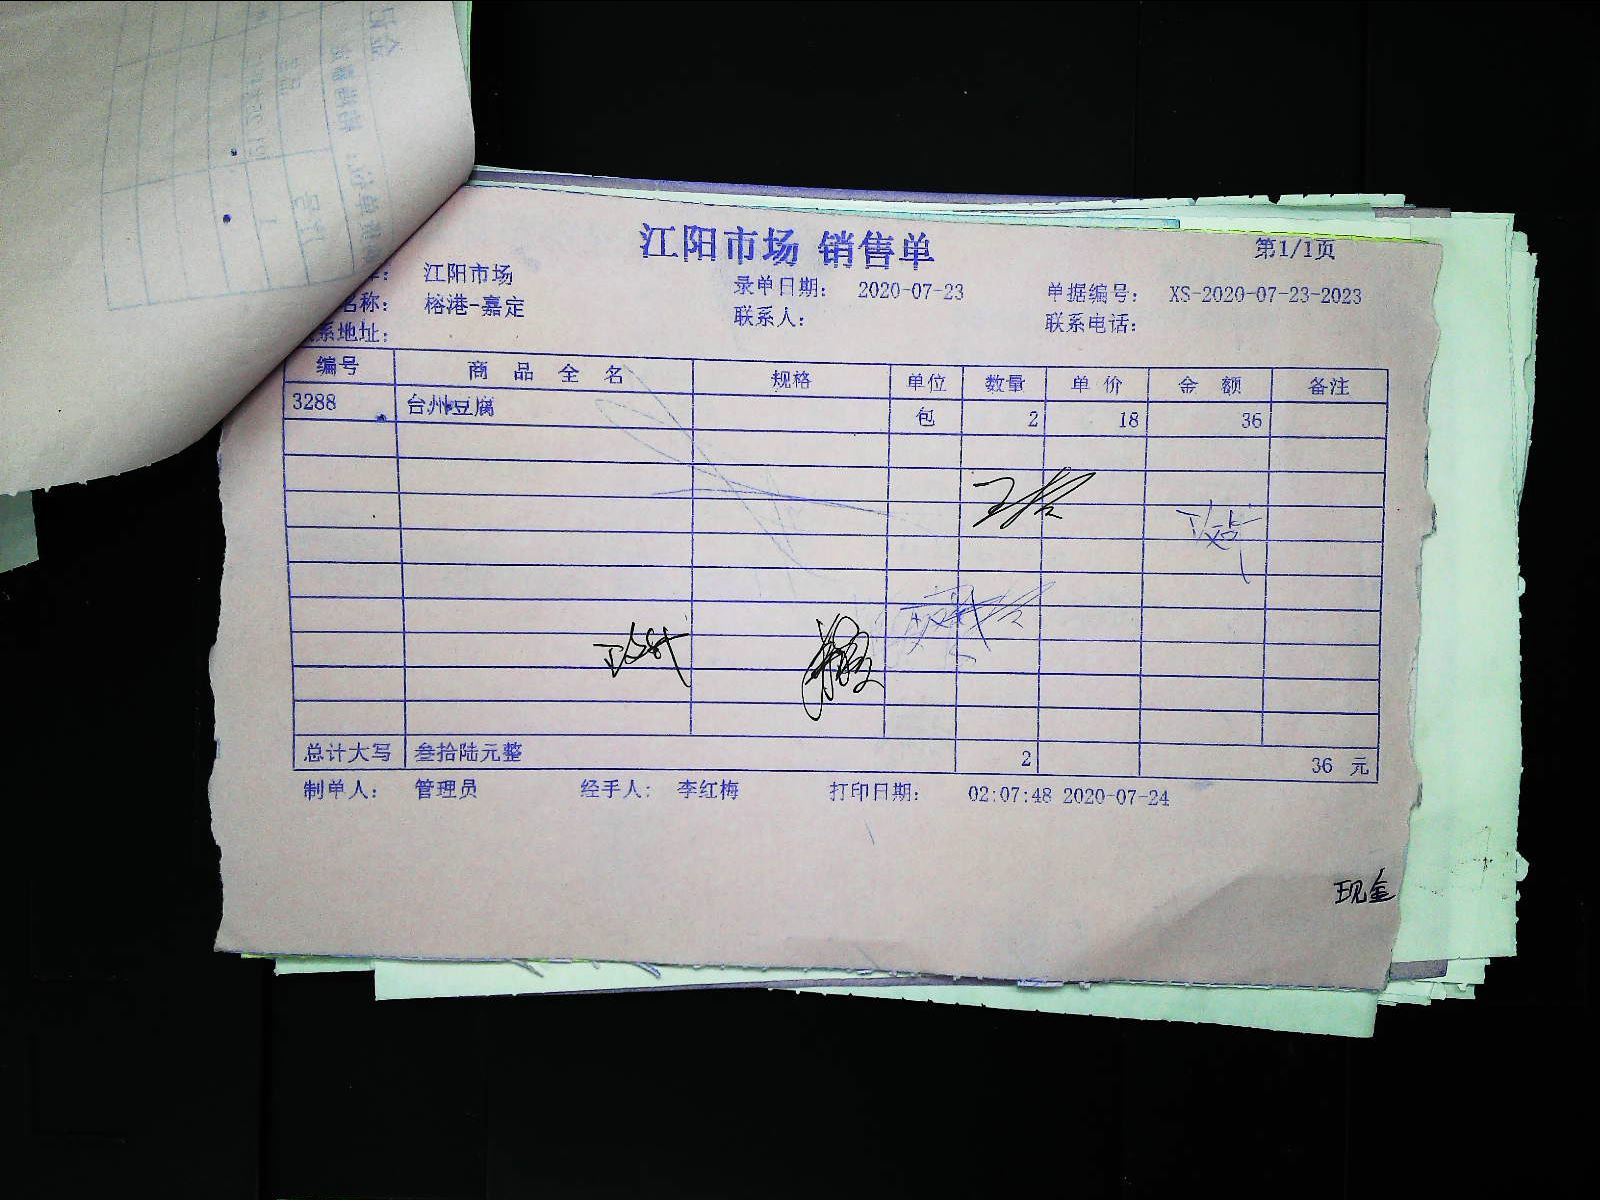 江阳市场 销售单
第1/1页
江阳市场 录单日期： 2020-07-23 单据编号： XS-2020-07-23-2023
名称： 榕港-嘉定 联系人： 联系电话：
系地址：
编号 商品全名 规格 单位 数量 单价 金额 备注
3288 台州豆腐 包 2 18 36
总计大写 叁拾陆元整 2 36 元
制单人： 管理员 经手人： 李红梅 打印日期： 02:07:48 2020-07-24
现金